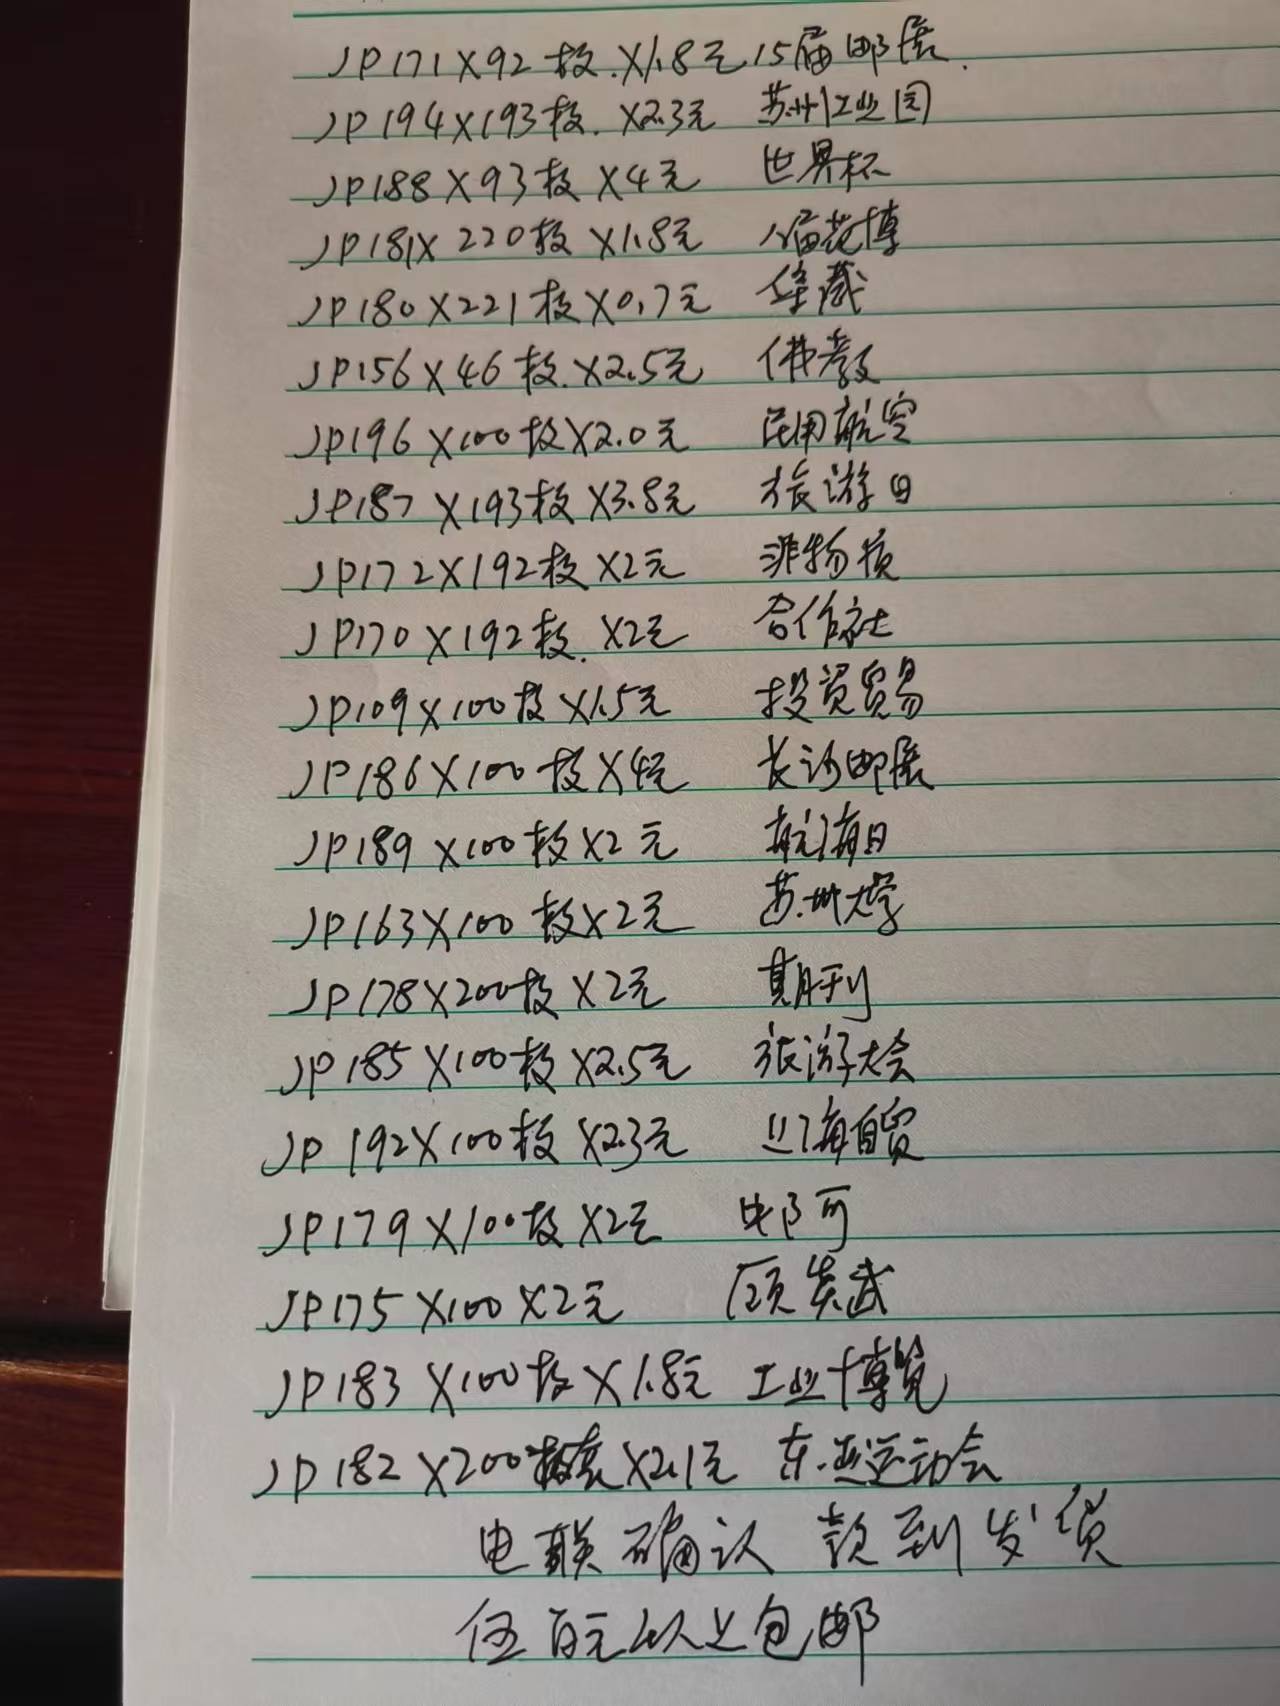 JP171X92枚.X1.8元 15届邮展.
JP194X193枚.X2.3元 苏州工业园
JP188X93枚X4元 世界杯
JP181X220枚X1.8元 八届花博
JP180X221枚X0.7元 华藏
JP156X46枚.X2.5元 佛教
JP196X100枚X2.0元 民用航空
JP187X193枚X3.8元 旅游日
JP172X192枚X2元 非物质
JP170X192枚.X2元 合作社
JP109X100枚X1.5元 投资贸易
JP186X100枚X4元 长沙邮展
JP189X100枚X2元 航海日
JP163X100枚X2元 苏州大学
JP178X200枚X2元 期刊
JP185X100枚X2.5元 旅游大会
JP192X100枚X2.3元 上海自贸
JP179X100枚X2元
JP175X100X2元 顾炎武
JP183X100枚X1.8元 工业博览
JP182X200套X2.1元 东亚运动会
电联确认 款到发货
伍百元以上包邮